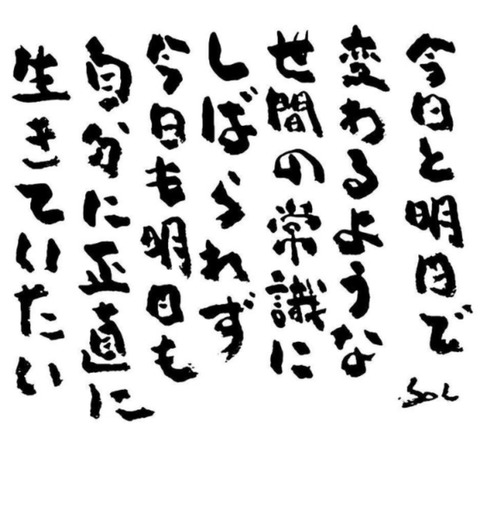 今日と明日で
変わるような
世間の常識に
しばられず
今日も明日も
自分に正直に
生きていたい
SOL